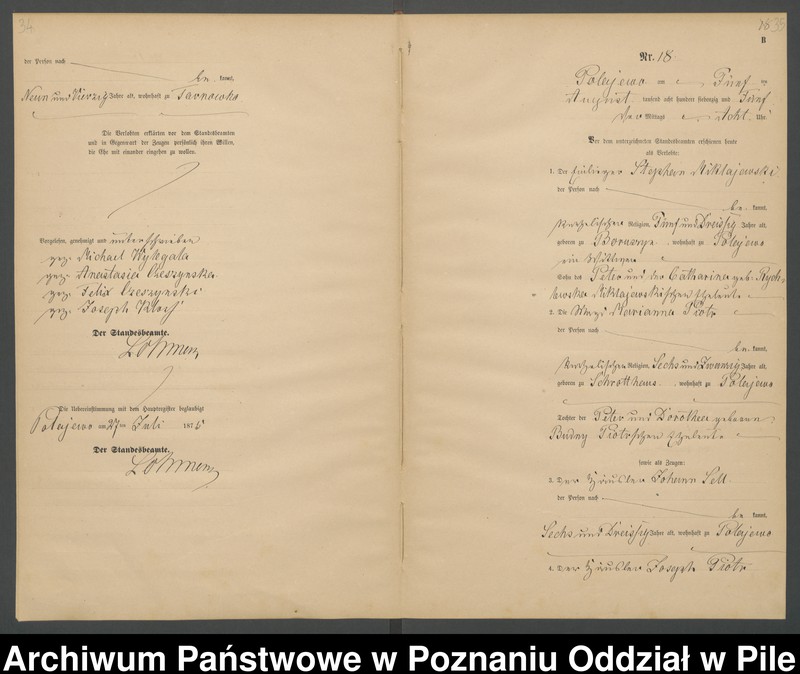 34
der Person nach
be kannt,
Neun und Vierzig Jahre alt, wohnhaft zu Tarnowko
Die Verlobten erklärten vor dem Standesbeamten
und in Gegenwart der Zeugen persönlich ihren Willen,
die Ehe mit einander eingehen zu wollen.
Vorgelesen, genehmigt und unterschrieben
gez. Michael Wylegala
gez. Anastasia Czeszynska
gez. Felix Czeszynski
gez. Joseph
Der Standesbeamte.
Die Uebereinstimmung mit dem Hauptregister beglaubigt
Polajewo am 27ten Juli 1875
Der Standesbeamte.
18 35
B
Nr. 18
Polajewo am Fünf ten
August tausend acht hundert siebenzig und Fünf
Vor Mittags Acht Uhr
Vor dem unterzeichneten Standesbeamten erschienen heute
als Verlobte:
1. Der Einlieger Stephan Niklajewski
der Person nach
be kannt,
katholischer Religion, Fünf und Dreissig Jahre alt,
geboren zu wohnhaft zu Polajewo
ein Wittwer
Sohn des Peter und der Catharina geb.
Niklajewskischen Eheleute
2. Die Marianna Piotr
der Person nach
be kannt,
katholischer Religion, Sechs und Zwanzig Jahre alt,
geboren zu Schrotthaus, wohnhaft zu Polajewo
Tochter der Peter und Dorothea geborenen
Budny Piotrschen Eheleute
sowie als Zeugen:
3. Der Häusler Johann Sell
der Person nach
be kannt,
Sechs und Dreissig Jahre alt, wohnhaft zu Polajewo
4. Der Häusler Joseph Piotr
Archiwum Państwowe w Poznaniu Oddział w Pile